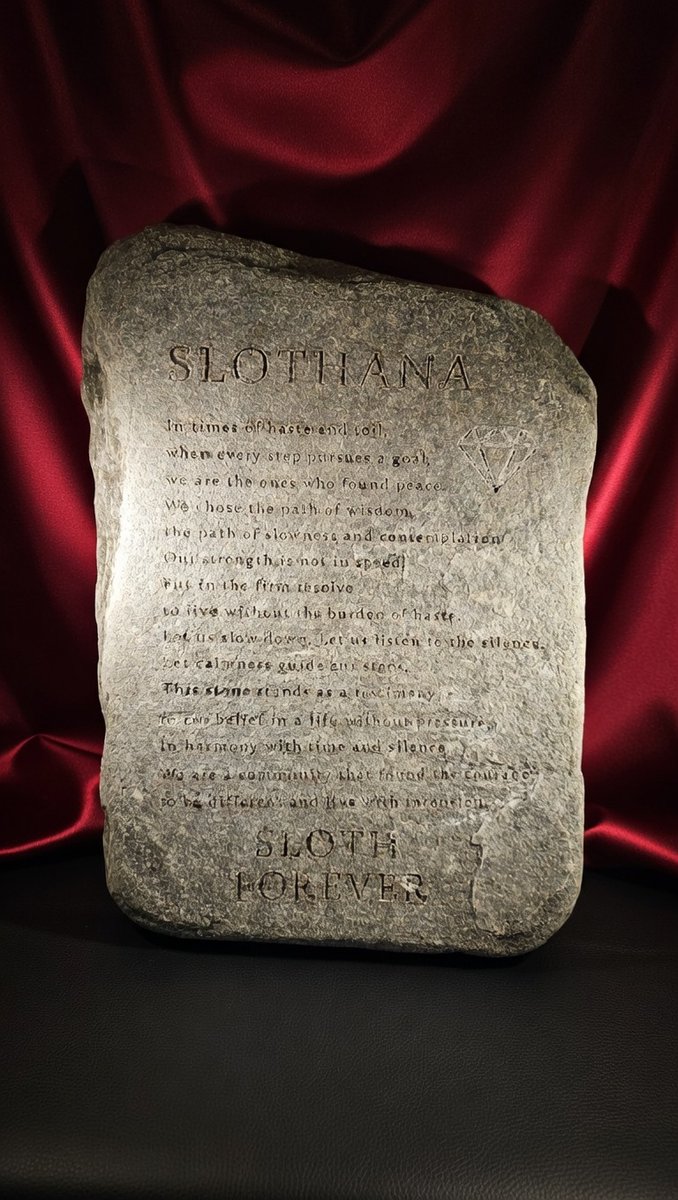 SLOTHANA
In times of haste and toil,
when every step pursues a goal,
we are the ones who found peace.
We chose the path of wisdom,
the path of slowness and contemplation
Our strength is not in speed,
But in the firm resolve
to live without the burden of haste.
Let us slow down. Let us listen to the silence.
Let calmness guide our steps.
This stone stands as a testimony
to our belief in a life without pressure,
in harmony with time and silence
We are a community that found the courage
to be different and live with intention.
SLOTH
FOREVER